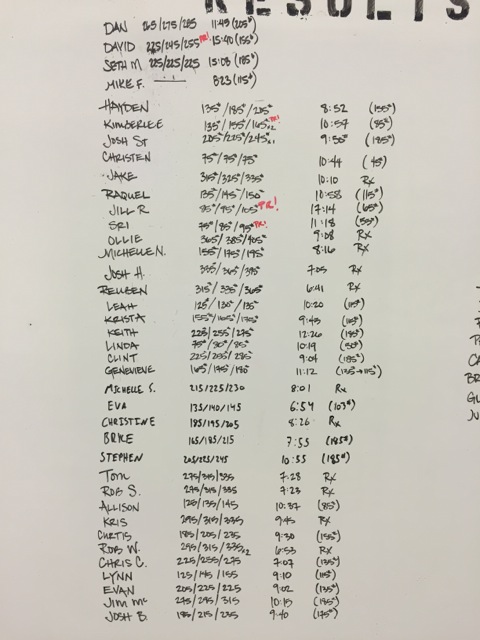 RESULTS
DAN 265/275/285 11:49 (205#)
DAVID 225/245/255 PR! 15:40 (155#)
SETH M 225/225/225 15:08 (185#)
MIKE F. 8:23 (115#)
HAYDEN 135#/185#/205# 8:52 (155#)
KIMBERLEE 135#/155#/165#x2 PR! 10:57 (85#)
JOSH ST 205#/225#/245#x1 9:50# (185#)
CHRISTEN 75#/75#/75# 10:44 (45#)
JAKE 315#/325#/335# 10:10 RX
RAQUEL 135#/145#/150# 10:58 (115#)
JILL R. 85#/95#/105# PR! 17:14 (65#)
SRI 75#/85#/95# PR! 11:18 (55#)
OLLIE 365#/385#/405# 9:08 RX
MICHELLE N. 155#/175#/195# 8:16 RX
JOSH H. 7:05 RX
REUBEN 315#/335#/365# 6:41 RX
LEAH 125#/130#/135# 10:20 (115#)
KRISTA 155#/165#/175# 9:45 (115#)
KEITH 225#/255#/275# 12:26 (185#)
LINDA 75#/80#/85# 10:19 (50#)
CLINT 225/255#/285# 9:04 (185#)
GENEVIEVE 165#/175#/180# 11:12 (135→115#)
MICHELLE S. 215/225/230 8:01 RX
EVA 135/140/145 6:54 (103#)
CHRISTINE 185/195/205 8:26 RX
BRKE 165/185/215 7:55 (185#)
STEPHEN 205/225/245 10:55 (185#)
TOM 275/315/335 7:28 RX
ROB S. 295/315/335 7:23 RX
ALLISON 125/135/145 10:37 (85#)
KRIS 295/315/335 9:45 RX
CURTIS 185/205/235 9:30 (155#)
ROB W. 295/315/335x2 6:53 RX
CHRIS C. 225/255/275 7:07 (135#)
LYNN 125/145/155 9:10 (115#)
EVAN 205/225/225 9:02 (135#)
JIM MC 275/295/315 10:15 (185#)
JOSH B. 195/215/235 9:40 (175#)
P
CA
BR
GL
JU